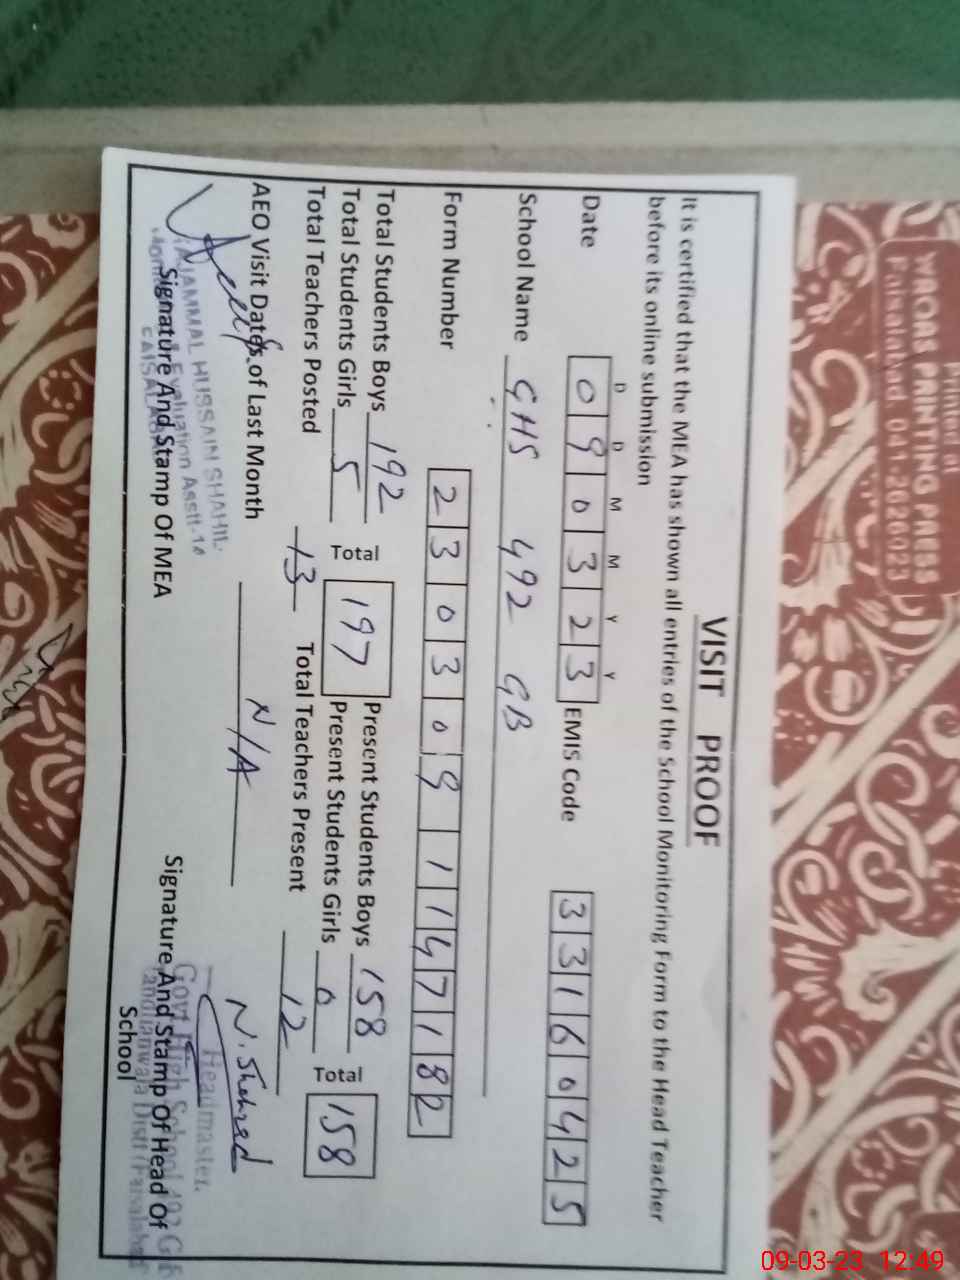 VISIT PROOF
It is certified that the MEA has shown all entries of the School Monitoring Form to the Head Teacher
before its online submission
D D M M Y Y
Date 0 9 0 3 2 3 EMIS Code 3 3 1 6 0 4 2 5
School Name GHS 492 GB
Form Number 2 3 0 3 0 9 1 1 4 7 1 8 2
Total Students Boys 192 Total 197 Present Students Boys 158 Total 158
Total Students Girls 5 Present Students Girls 0
Total Teachers Posted 13 Total Teachers Present 12
AEO Visit Dates of Last Month N/A
N. Shehzad
TAJAMMAL HUSSAIN SHAHI
Evaluation Asstt-
FAISALABAD
Signature And Stamp Of MEA
Headmaster.
Govt High School 492 GB
Tandlianwala Distt (Faisalabad
Signature And Stamp Of Head Of
School
Printed at
WAQAS PRINTING PRESS
Faisalabad 041-2626023
09-03-23 12:49